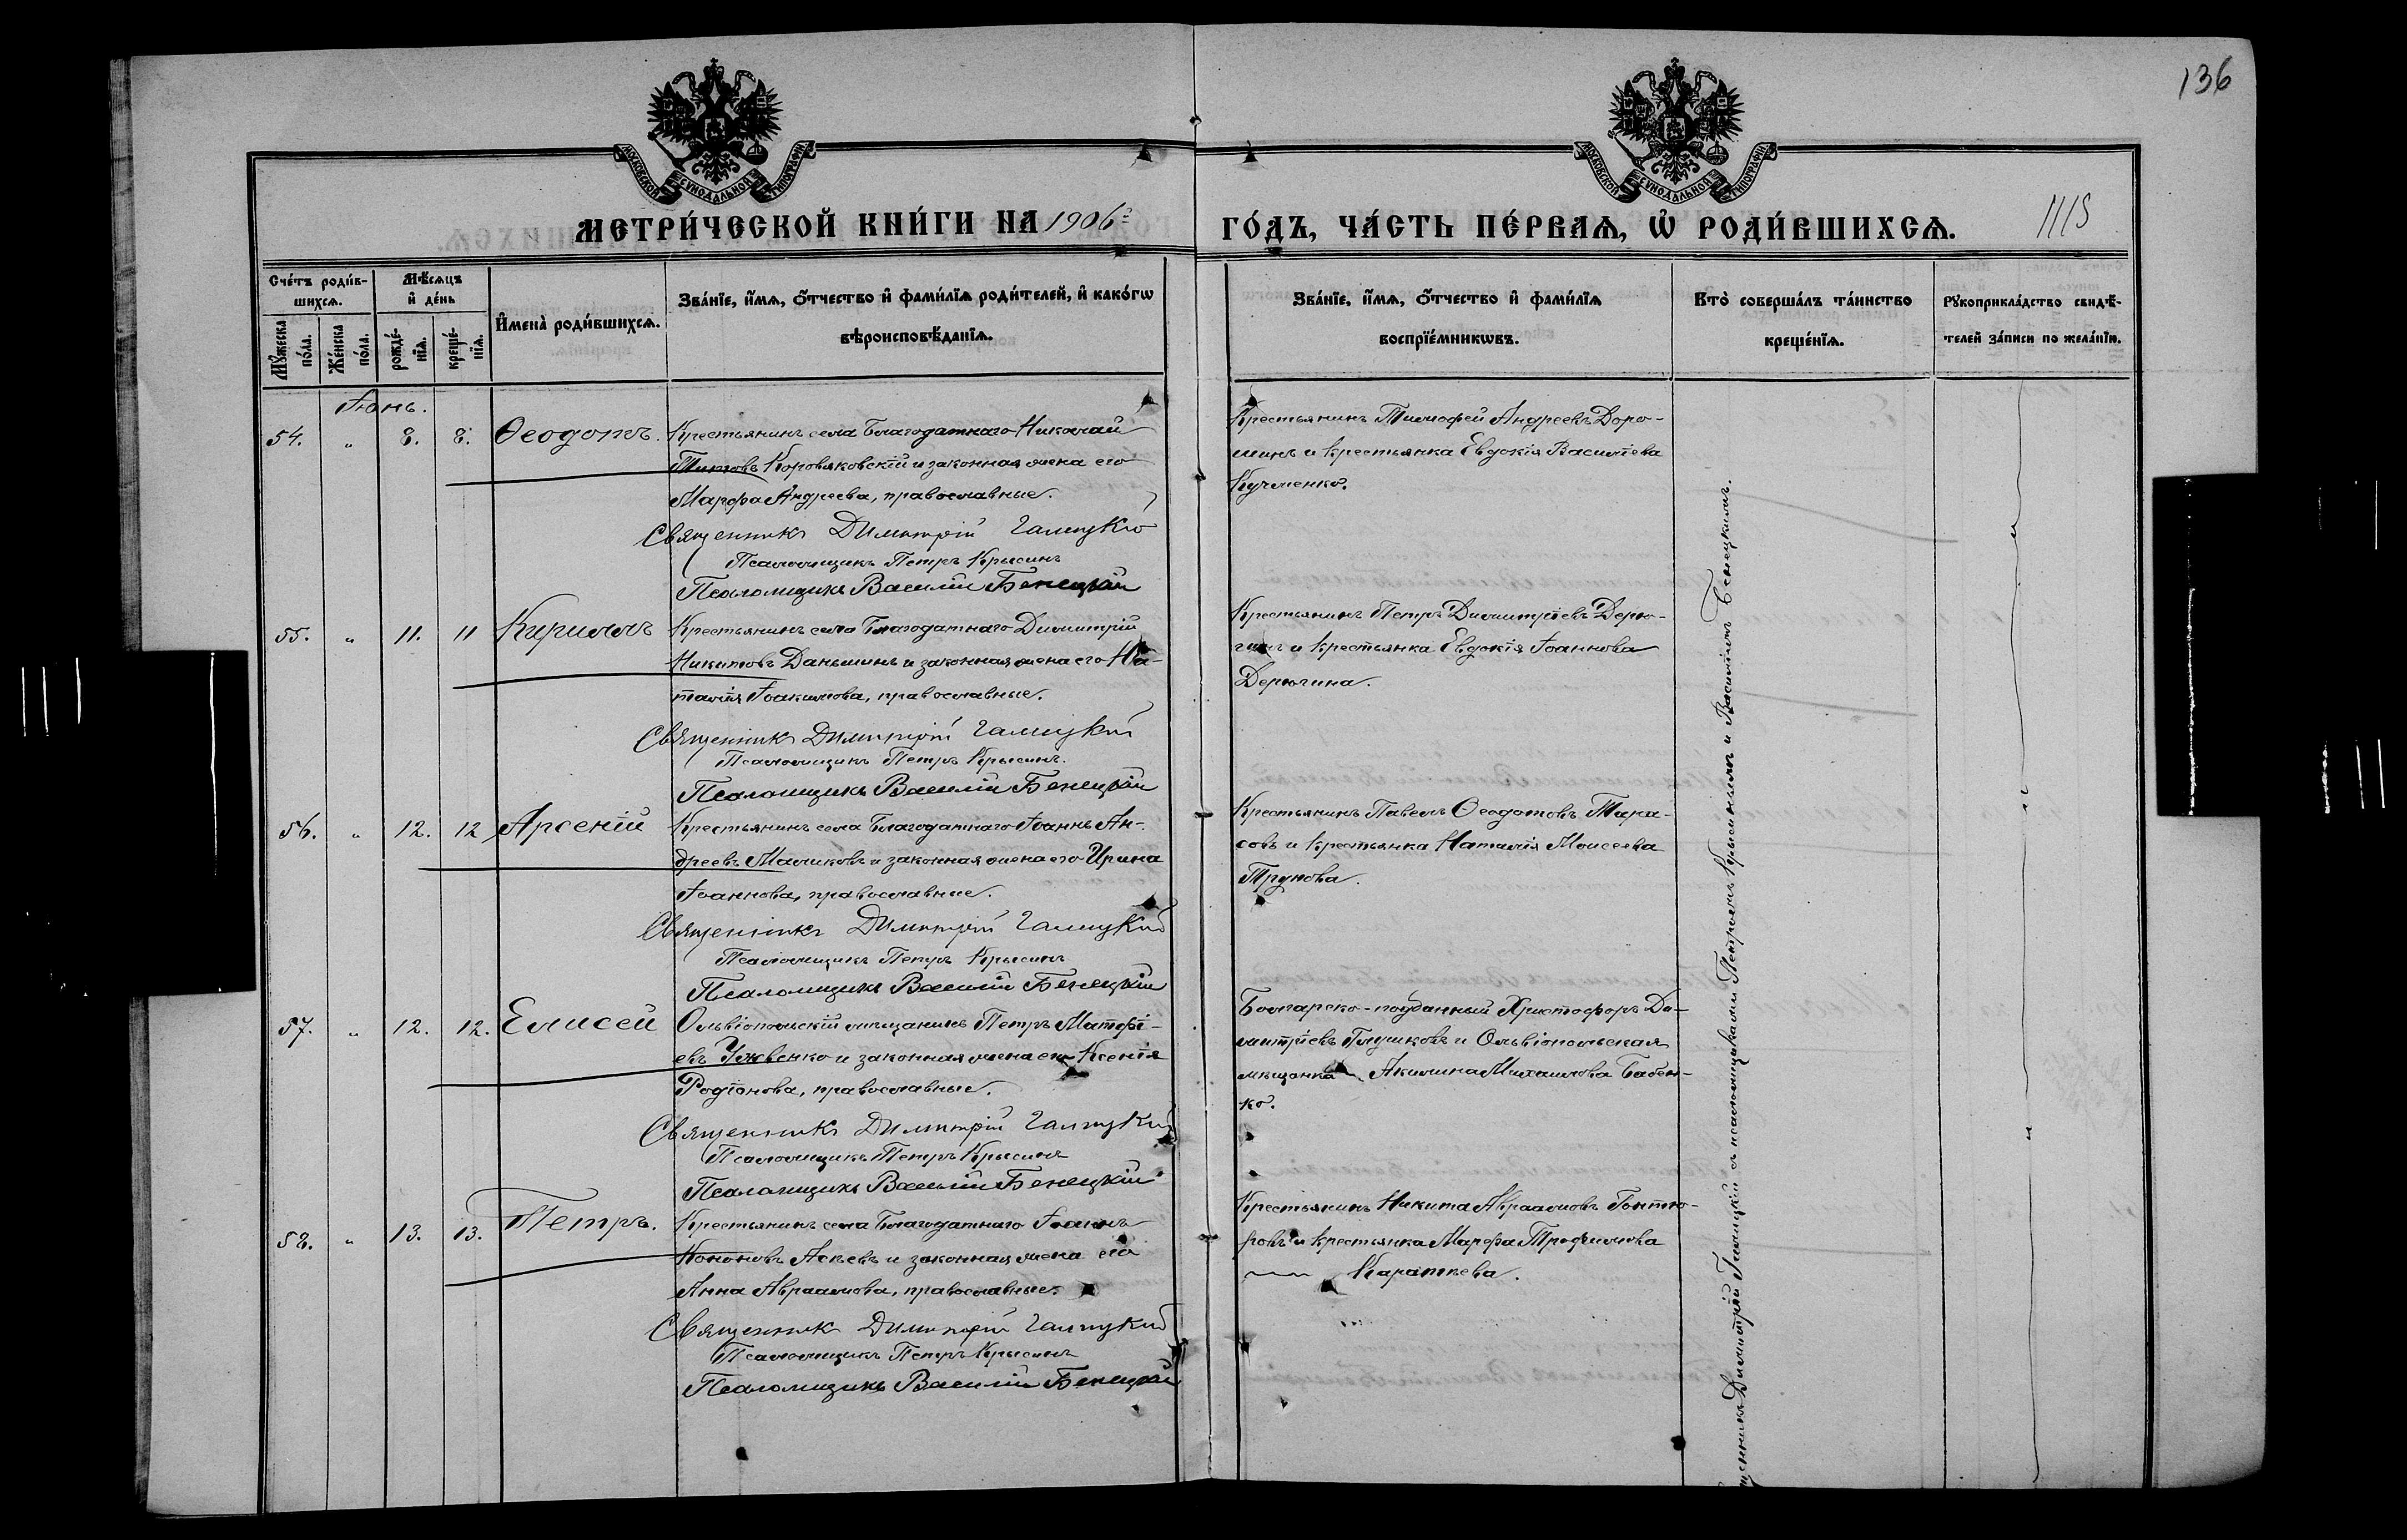 136
МОСКОВСКОЙ СѴНОДАЛЬНОЙ ТИПОГРАФІИ
МОСКОВСКОЙ СѴНОДАЛЬНОЙ ТИПОГРАФІИ
МЕТРИ́ЧЕСКОЙ КНИ́ГИ НА 1906 г.
ГО́ДЪ, ЧА́СТЬ ПЕ́РВАѦ, Ѡ҆ РОДИ́ВШИХСѦ.
Сче́тъ роди́в-
шихсѧ.
Мꙋ́жеска по́ла.
Же́нска по́ла.
Мѣ́сѧцъ
и҆ де́нь
рожде́-
нїѧ.
креще́-
нїѧ.
И҆мена̀ роди́вшихсѧ.
Зва́нїе, и҆́мѧ, ѻ҆́тчество и҆ фами́лїѧ роди́телей, и҆ како́гѡ
вѣроисповѣ́данїѧ.
Зва́нїе, и҆́мѧ, ѻ҆́тчество и҆ фами́лїѧ
воспрїе́мникѡвъ.
Кто̀ соверша́лъ та́инство
креще́нїѧ.
Рꙋкоприкла́дство свидѣ́-
телей за́писи по жела́нїю.
Іюнь.
54. " 8. 8. Ѳеодотъ. Крестьянинъ села Благодатнаго Николай
Титовъ Коровяковскій и законная жена его
Марфа Андреева, православные.
Священникъ Димитрій Галицкій
Псаломщикъ Петръ Крысинъ
Псаломщикъ Василій Бенецкій
Крестьянинъ Тимофей Андреевъ Доро-
шинъ и крестьянка Евдокія Василіева
Кучменко.
55. " 11. 11 Кириллъ Крестьянинъ села Благодатнаго Димитрій
Никитовъ Даньшинъ и законная жена его На-
талія Іоакимова, православные.
Священникъ Димитрій Галицкій
Псаломщикъ Петръ Крысинъ.
Псаломщикъ Василій Бенецкій
Крестьянинъ Петръ Димитріевъ Дерю-
гинъ и крестьянка Евдокія Іоаннова
Дерюгина.
56. " 12. 12 Арсеній Крестьянинъ села Благодатнаго Іоаннъ Ан-
дреевъ Маликовъ и законная жена его Ирина
Іоаннова, православные.
Священникъ Димитрій Галицкій
Псаломщикъ Петръ Крысинъ
Псаломщикъ Василій Бенецкій
Крестьянинъ Павелъ Ѳеодотовъ Тара-
совъ и крестьянка Наталія Моисеева
Трунова.
57. " 12. 12. Елисей Ольвіопольскій мѣщанинъ Петръ Матфі-
евъ Ужвенко и законная жена его Ксенія
Родіонова, православные.
Священникъ Димитрій Галицкій
Псаломщикъ Петръ Крысинъ
Псаломщикъ Василій Бенецкій
Болгарско-подданный Христофоръ Ди-
митріевъ и Ольвіопольская
мѣщанка Акилина Михаилова Бабен-
ко.
58. " 13. 13. Петръ. Крестьянинъ села Благодатнаго Іоаннъ
Кононовъ Асѣевъ и законная жена его
Анна Авраамова, православные.
Священникъ Димитрій Галицкій
Псаломщикъ Петръ Крысинъ
Псаломщикъ Василій Бенецкій
Крестьянинъ Никита Авраамовъ Гонтю-
ровъ и крестьянка Марфа Трофимова
Каратѣева.
Димитрій Галицкій съ псаломщиками Петромъ Крысинымъ и Василіемъ Бенецкимъ.